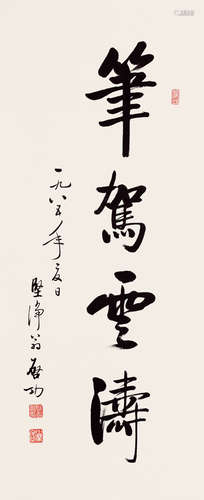 筆駕雲濤
一九八五年夏日
堅淨翁啟功